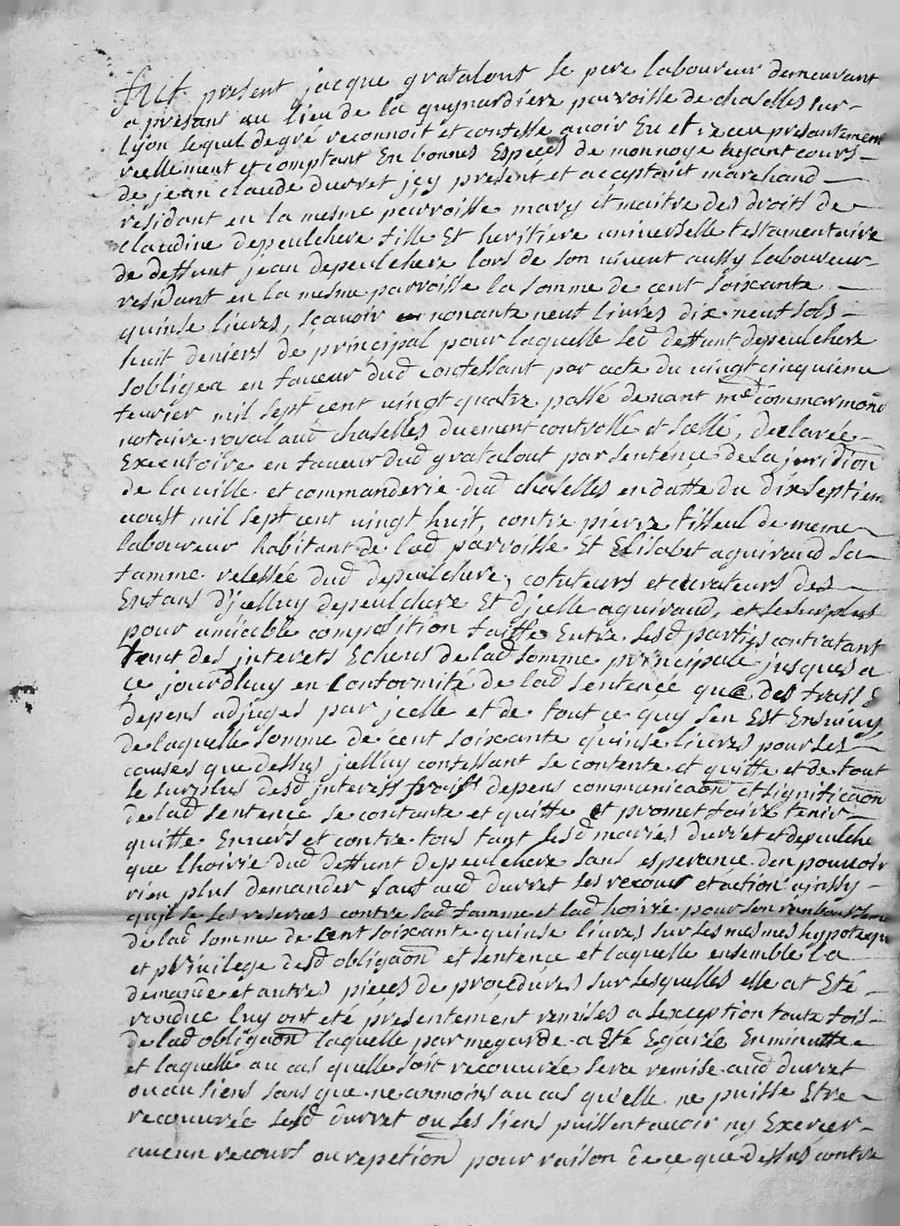 fut present jacque gratalout le pere laboureur demeurant
a présant au lieu de la guynardiere parroisse de chaselles sur
Lyon lequel de gré reconnoit et confesse avoir Eu et receu présantement
reellement et comptant En bonnes Espéces de monnoye ayant cours
de jean claude durret jcy présent et acceptant marchand
résidant en la mesme parroisse mary et maitre des droits de
claudine depeulchere fille Et heritiere universelle testamentaire
de deffunt jean depeulchere lors de son vivent aussy laboureur
residant en la mesme parroisse la somme de cent soixante
quinse livres, sçavoir nonante neuf livres dix neuf sols
huit deniers de principal pour laquelle led deffunt depeulchere
s'obligea en faveur dud confessant par acte du vingt cinquieme
fevrier mil sept cent vingt quatre passé devant me commarmond
notaire royal aud chaselles duement controllé et scellé, declarée
Executoire en faveur dud gratalout par sentence de la juridion
de la ville et commanderie dud chaselles en datte du dix septiem
aoust mil sept cent vingt huit, contre pierre tisseul de meme
laboureur habitant de lad parroisse Et Elisabet aguiraud sa
famme relessée dud depeulchere, cotuteurs et curateurs des
Enfans d'jcelluy depeulchere Et d'jcelle aguiraud, et le surplus
pour amiable composition faitte Entre lesd parties contratant
tant des interets Echeus de lad somme principale jusques a
ce jourdhuy en conformité de lad sentence que des frais &
depens adjuges par jcelle et de tout ce quy s'en Est Ensuivy
de laquelle somme de cent soixante quinse livres pour les
causes que dessus jcelluy confessant se contente et quitte et de tout
le surplus desd interest frais depens communicaon et significaon
de lad sentence se contante et quitte et promet faire tenir
quitte Envers et contre tous tant lesd mariés durret et depeulche
que l'hoirie dud deffunt depeulchere sans esperance d'en pouvoir
rien plus demander sauf aud durret ses recours et action ainssy
qu'jl se les reserves contre sad famme et lad hoirie pour son rembourseme
de lad somme de cent soixante quinse livres sur les mesmes hypoteque
et privilege desd obligaon et sentence et laquelle ensemble la
demande et autres pieces de procedures sur lesquelles elle at Eté
rendue luy ont eté presentement remises a l'exception toute fois
de lad obligaon laquelle par megarde a Eté Egarée En minutte
et laquelle au cas quelle soit recouvrée sera remise aud durret
ou au siens sans que ne anmoins au cas qu'elle ne puisse Etre
recouvrée led durret ou les siens puissent avoir ny Exercer
aucun recours ou repetion pour raison de ce que dessus contre